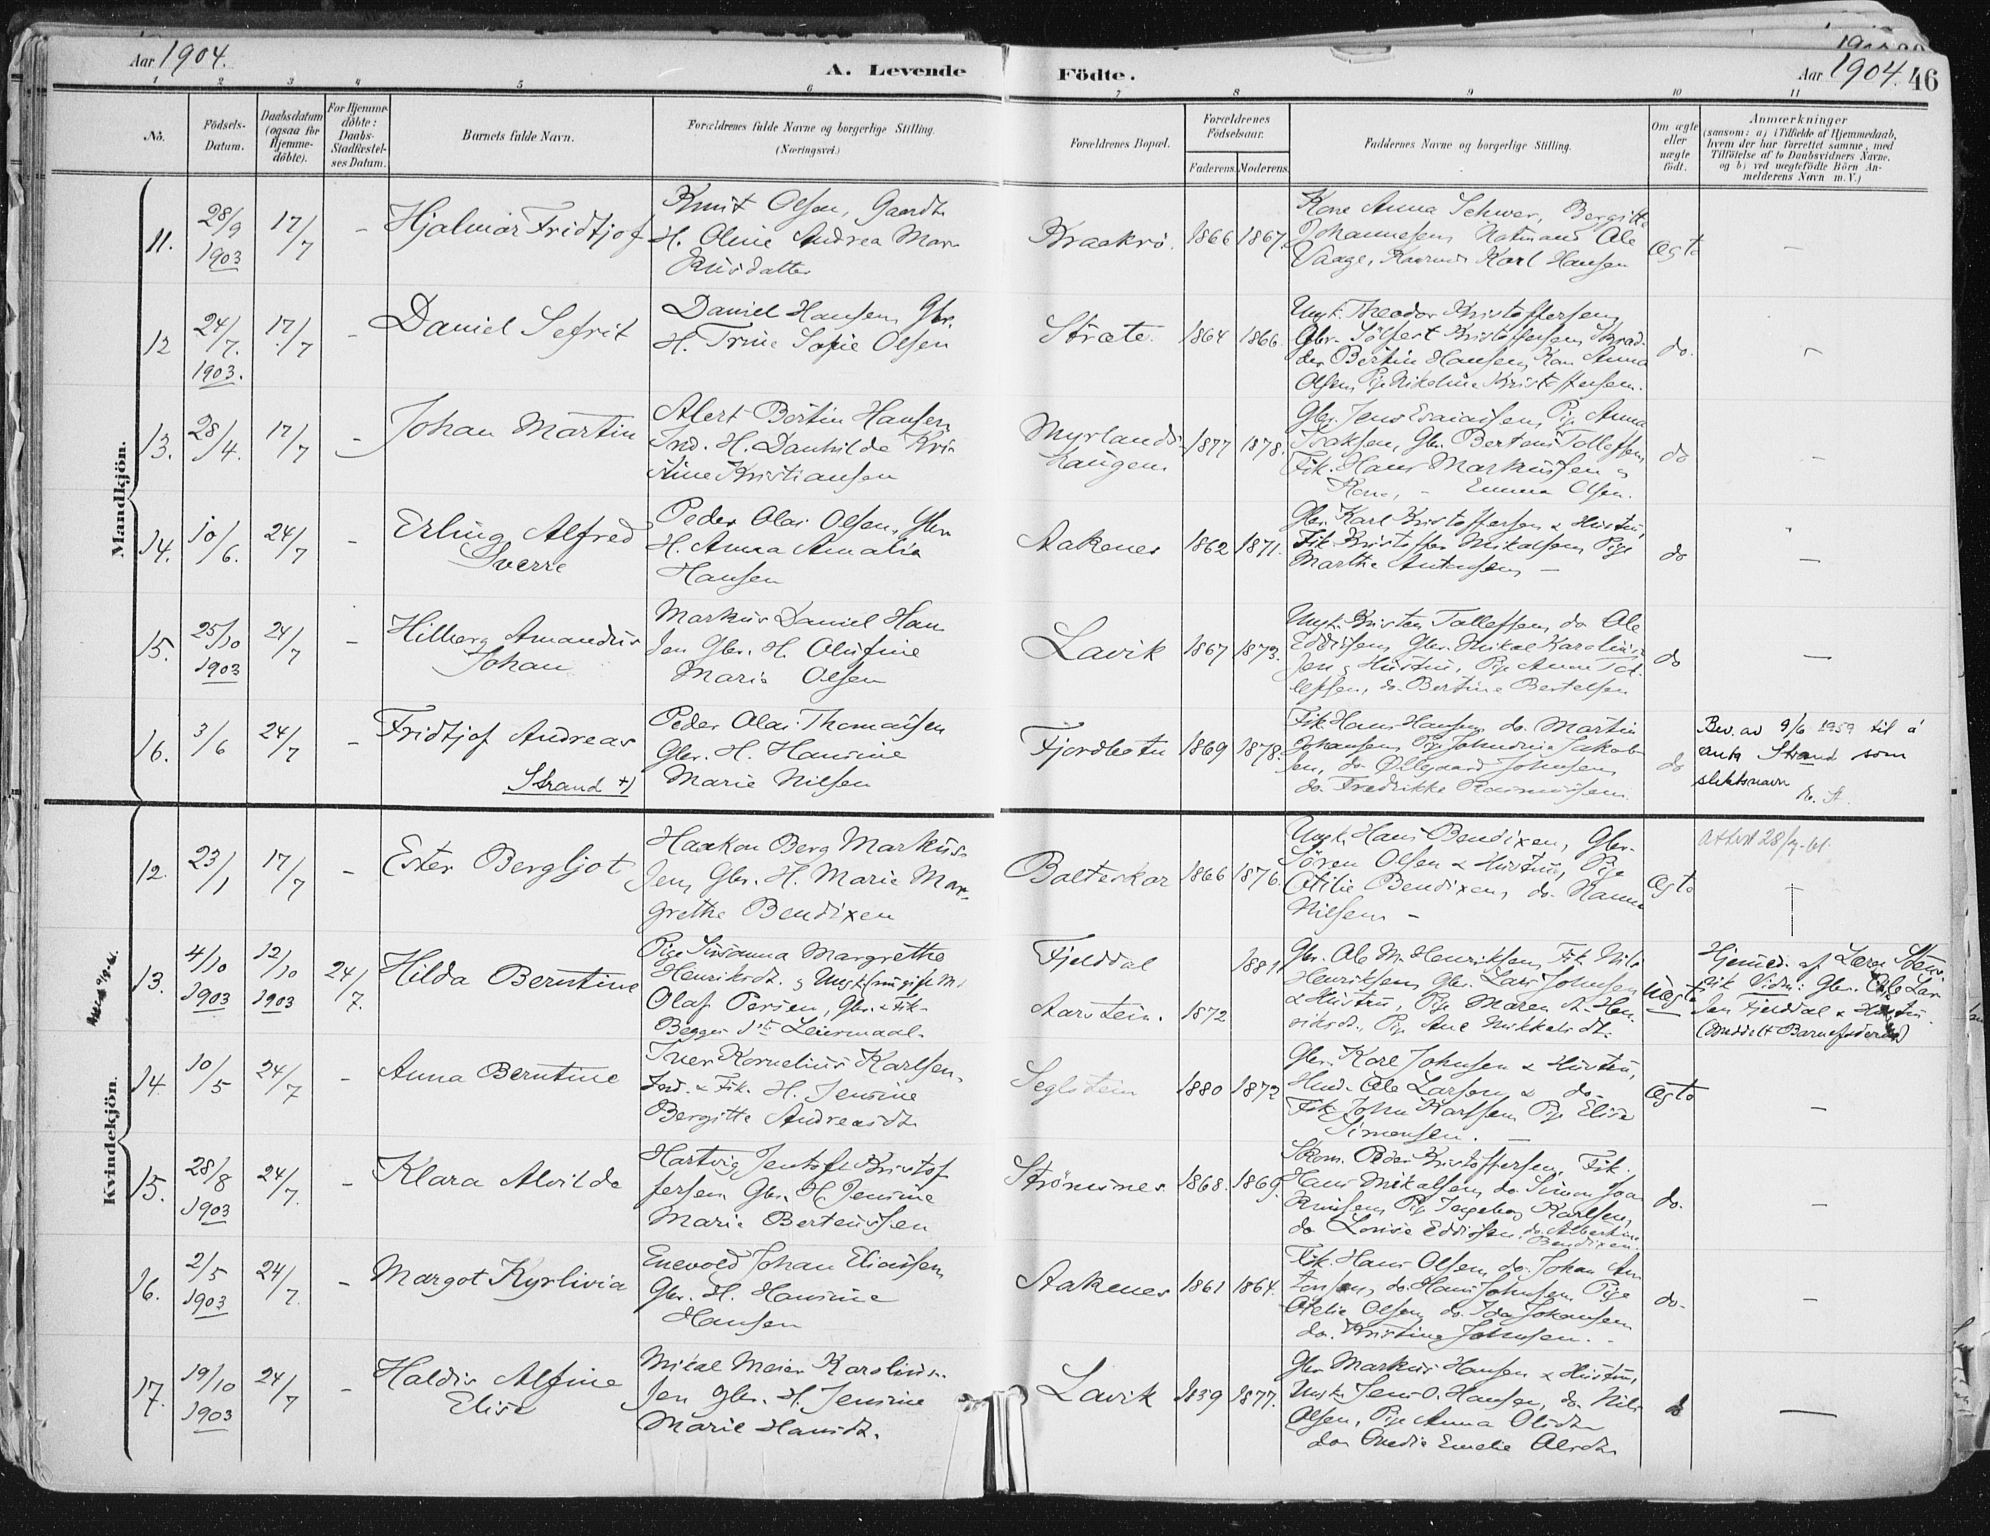 Aar 1904.
A. Levende
Födte.
Aar 1904.
46
1 2 3 4 5 6 7 8 9 10 11
No.
Födsels-
Datum.
Daabsdatum
(ogsaa for
Hjemme-
döbte).
For Hjemme-
döbte:
Daabs-
Stadfæstel-
ses Datum.
Barnets fulde Navn.
Forældrenes fulde Navne og borgerlige Stilling.
(Næringsvei.)
Forældrenes Bopæl.
Forældrenes
Födselsaar.
Faderens. Moderens.
Faddernes Navne og borgerlige Stilling.
Om ægte
eller
uægte
født.
Anmærkninger
(saasom: a) i Tilfælde af Hjemmedaab,
hvem der har forrettet samme, med
Tilföielse af to Daabsvidners Navne.
og b) ved uægtefödte Börn An-
melderens Navn m. V.)
Mandkjön.
11.
28/9
1903
17/7
-
Hjalmar Fridtjof
Knut Olsen, Gaardb.
H. Oline Andrea Mar-
kusdatter
Kraakrö.
1866
1867.
Kone Anna
Johannesen
Vaage, Karl Hansen
Ægte
-
12
24/7.
1903.
17/7
-
Daniel Sefrit
Daniel Hansen Gbr.
H. Trine Sofie Olsen
Stræte.
1864
1866.
Ungk. Theodor Kristoffersen,
Gbr. Kristoffersen,
Bertin Hansen, Kone Anna
Olsen, Pige Nikoline Kristoffersen.
do.
13.
28/4.
17/7
-
Johan Martin
Albert Bertin Hansen
Ind. H. Danhilde Kri-
stine Kristiansen
Myrlands-
haugen
1877
1878.
Gbr. Jens Esaiassen, Pige Anna
Isaksen, Gbr. Berteus Tollefsen,
Fik. Hans Markussen og
Kone, - Emma Olsen.
do
-
14.
10/6.
24/7
-
Erling Alfred
Sverre
Peder Olai Olsen, Gbr.
H. Anna Amalia
Hansen
Aakenes
1862
1871.
Gbr. Karl Kristoffersen & Hustru,
Fik. Kristoffer Mikalsen, Pige
Marthe Antonsen -
do
-
15.
25/10
1903
24/7
-
Hilberg Amandus
Johan
Markus Daniel Han-
sen Gbr. H. Olufine
Marie Olsen
Lavik
1867
1873.
Ungk. Kristen Tollefsen, do. Ole
Eddissen, Gbr. Mikal Karolius-
sen & Hustru, Pige Anna Tol-
lefsen, do. Bertine Bertelsen
do
-
16.
3/6
24/7
-
Fridtjof Andreas
Strand +)
Peder Olai Thomassen
Gbr. H. Hansine
Marie Nilsen
Fjordbotn
1869
1878.
Fik. Hans Hansen, do. Martin
Johansen, Pige Jakob-
sen, do. Johnsen,
do. Fredrikke Rasmussen.
do
Bev. av 9/6 1959 til å
anta Strand som
slektsnavn
Kvindekjön.
12.
23/1
17/7
-
Ester Bergljot
Haakon Berg Markus-
sen, Gbr. H. Marie Mar-
grethe Bendixen
Balteskar
1866
1876.
Ungk. Hans Bendixen, Gbr.
Sören Olsen & Hustru, Pige
Otilie Bendixen, do. Hanna
Nilsen -
Ægte
13.
4/10
1903
12/10
1903
24/7.
Hilda Berntine
Pige Susanna Margrethe
Henriksdt. og Ungk.
Olaf Persen, Gbr. & Fik.
Begges 1ste Leiermaal.
Fjelddal
Aarstein.
1872
1881
Gbr. Ole M. Henriksen, Fik. Nils
Henriksen, Gbr. Lars Johnsen
& Hustru, Pige Maren A. Hen-
riksdt., Pige Ane Mikkelsdt.
Uægte
Hjemmed. af Lærer
Vidn: Gbr. Ole Lar-
sen Fjelddal & Hustru.
(Anmeldt Barnefaderen)
14.
10/5
24/7
-
Anna Berntine
Iver Kornelius Karlsen,
Ind. & Fik. H. Jensine
Bergitte Andreasdt.
Seglstein
1880
1872
Gbr. Karl Johnsen & Hustru,
Ole Larsen & do.
Fik. John Karlsen, Pige Elise
Simonsen. -
Ægte
-
15.
28/8
1903
24/7.
-
Klara Alvilde
Hartvig Jentoft Kristof-
fersen Gbr. H. Jensine
Marie Berteussen
Strömsnes
1868.
1869.
Peder Kristoffersen, Fik.
Hans Mikalsen, do. Simon
Pige Ingeborg Karlsen,
do. Lovise Eddissen, do. Albertine
Bendixen.
do.
-
16.
2/5
1903
24/7.
-
Margot Kyrlivia
Enevold Johan Eliassen,
Gbr. H. Hansine
Hansen
Aakenes
1861
1864.
Fik. Hans Olsen, do. Johan An-
tonsen, do. Hans Johnsen, Pige
Otelie Olsen, do. Ida Johansen
do. Kristine Johnsen. -
do.
-
17.
19/10
1903
24/7
-
Haldis Alfine
Elise
Mikal Meier Karolius-
sen Gbr. H. Jensine
Marie Hansdt.
Lavik
1839
1877.
Gbr. Markus Hansen & Hustru,
Ungk. Jens O. Hansen, do. Nils
Olsen, Pige Anna Olsdt.
do. Emelie Olsdt.
do
-